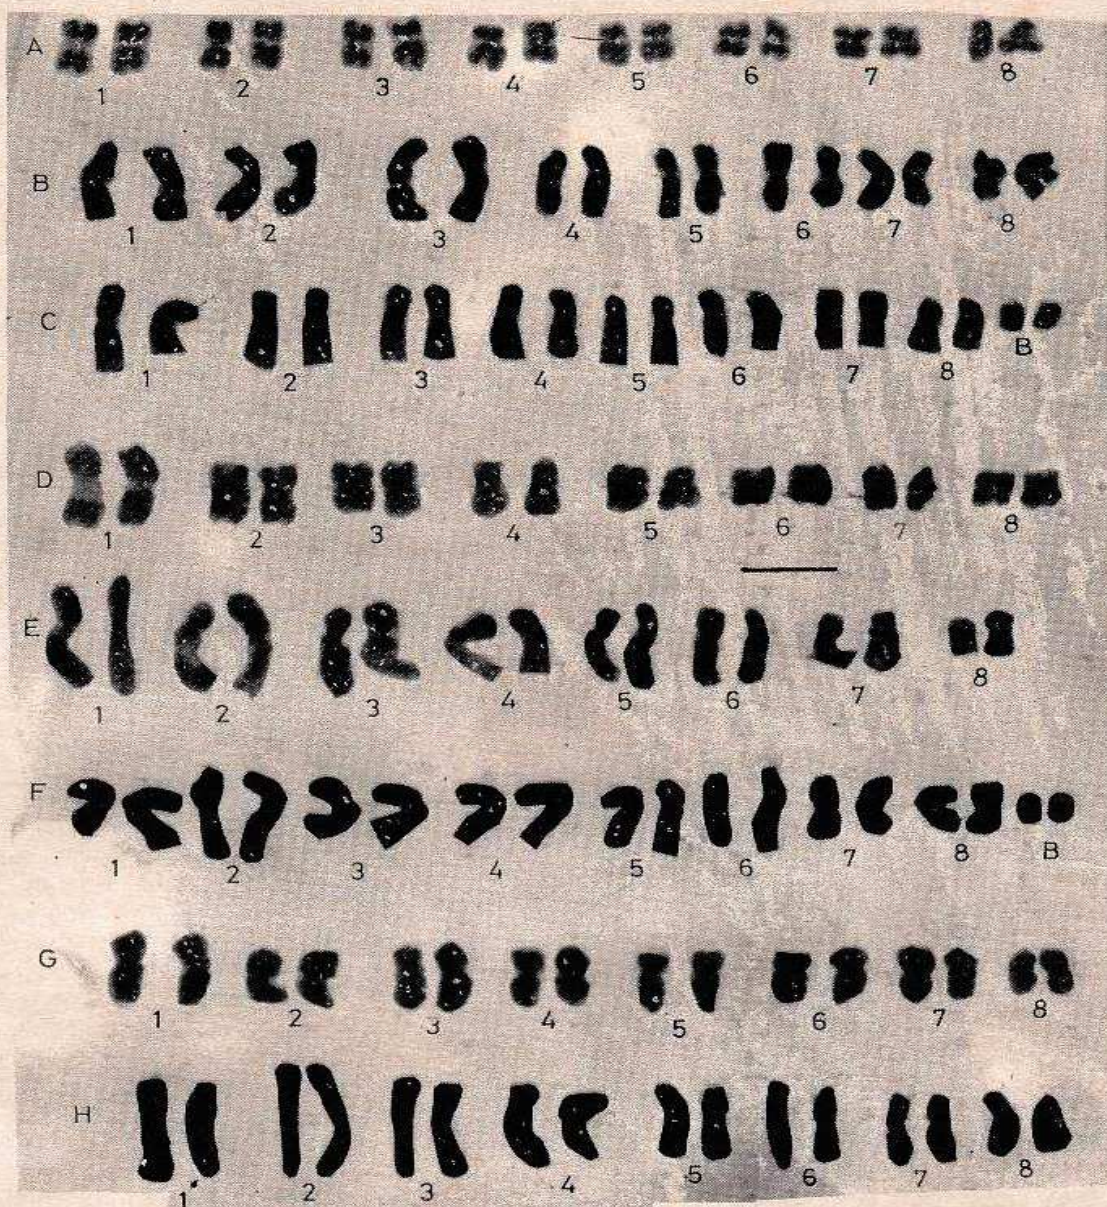 A
1 2 3 4 5 6 7 8
B
1 2 3 4 5 6 7 8
C
1 2 3 4 5 6 7 8 B
D
1 2 3 4 5 6 7 8
E
1 2 3 4 5 6 7 8
F
1 2 3 4 5 6 7 8 B
G
1 2 3 4 5 6 7 8
H
1 2 3 4 5 6 7 8